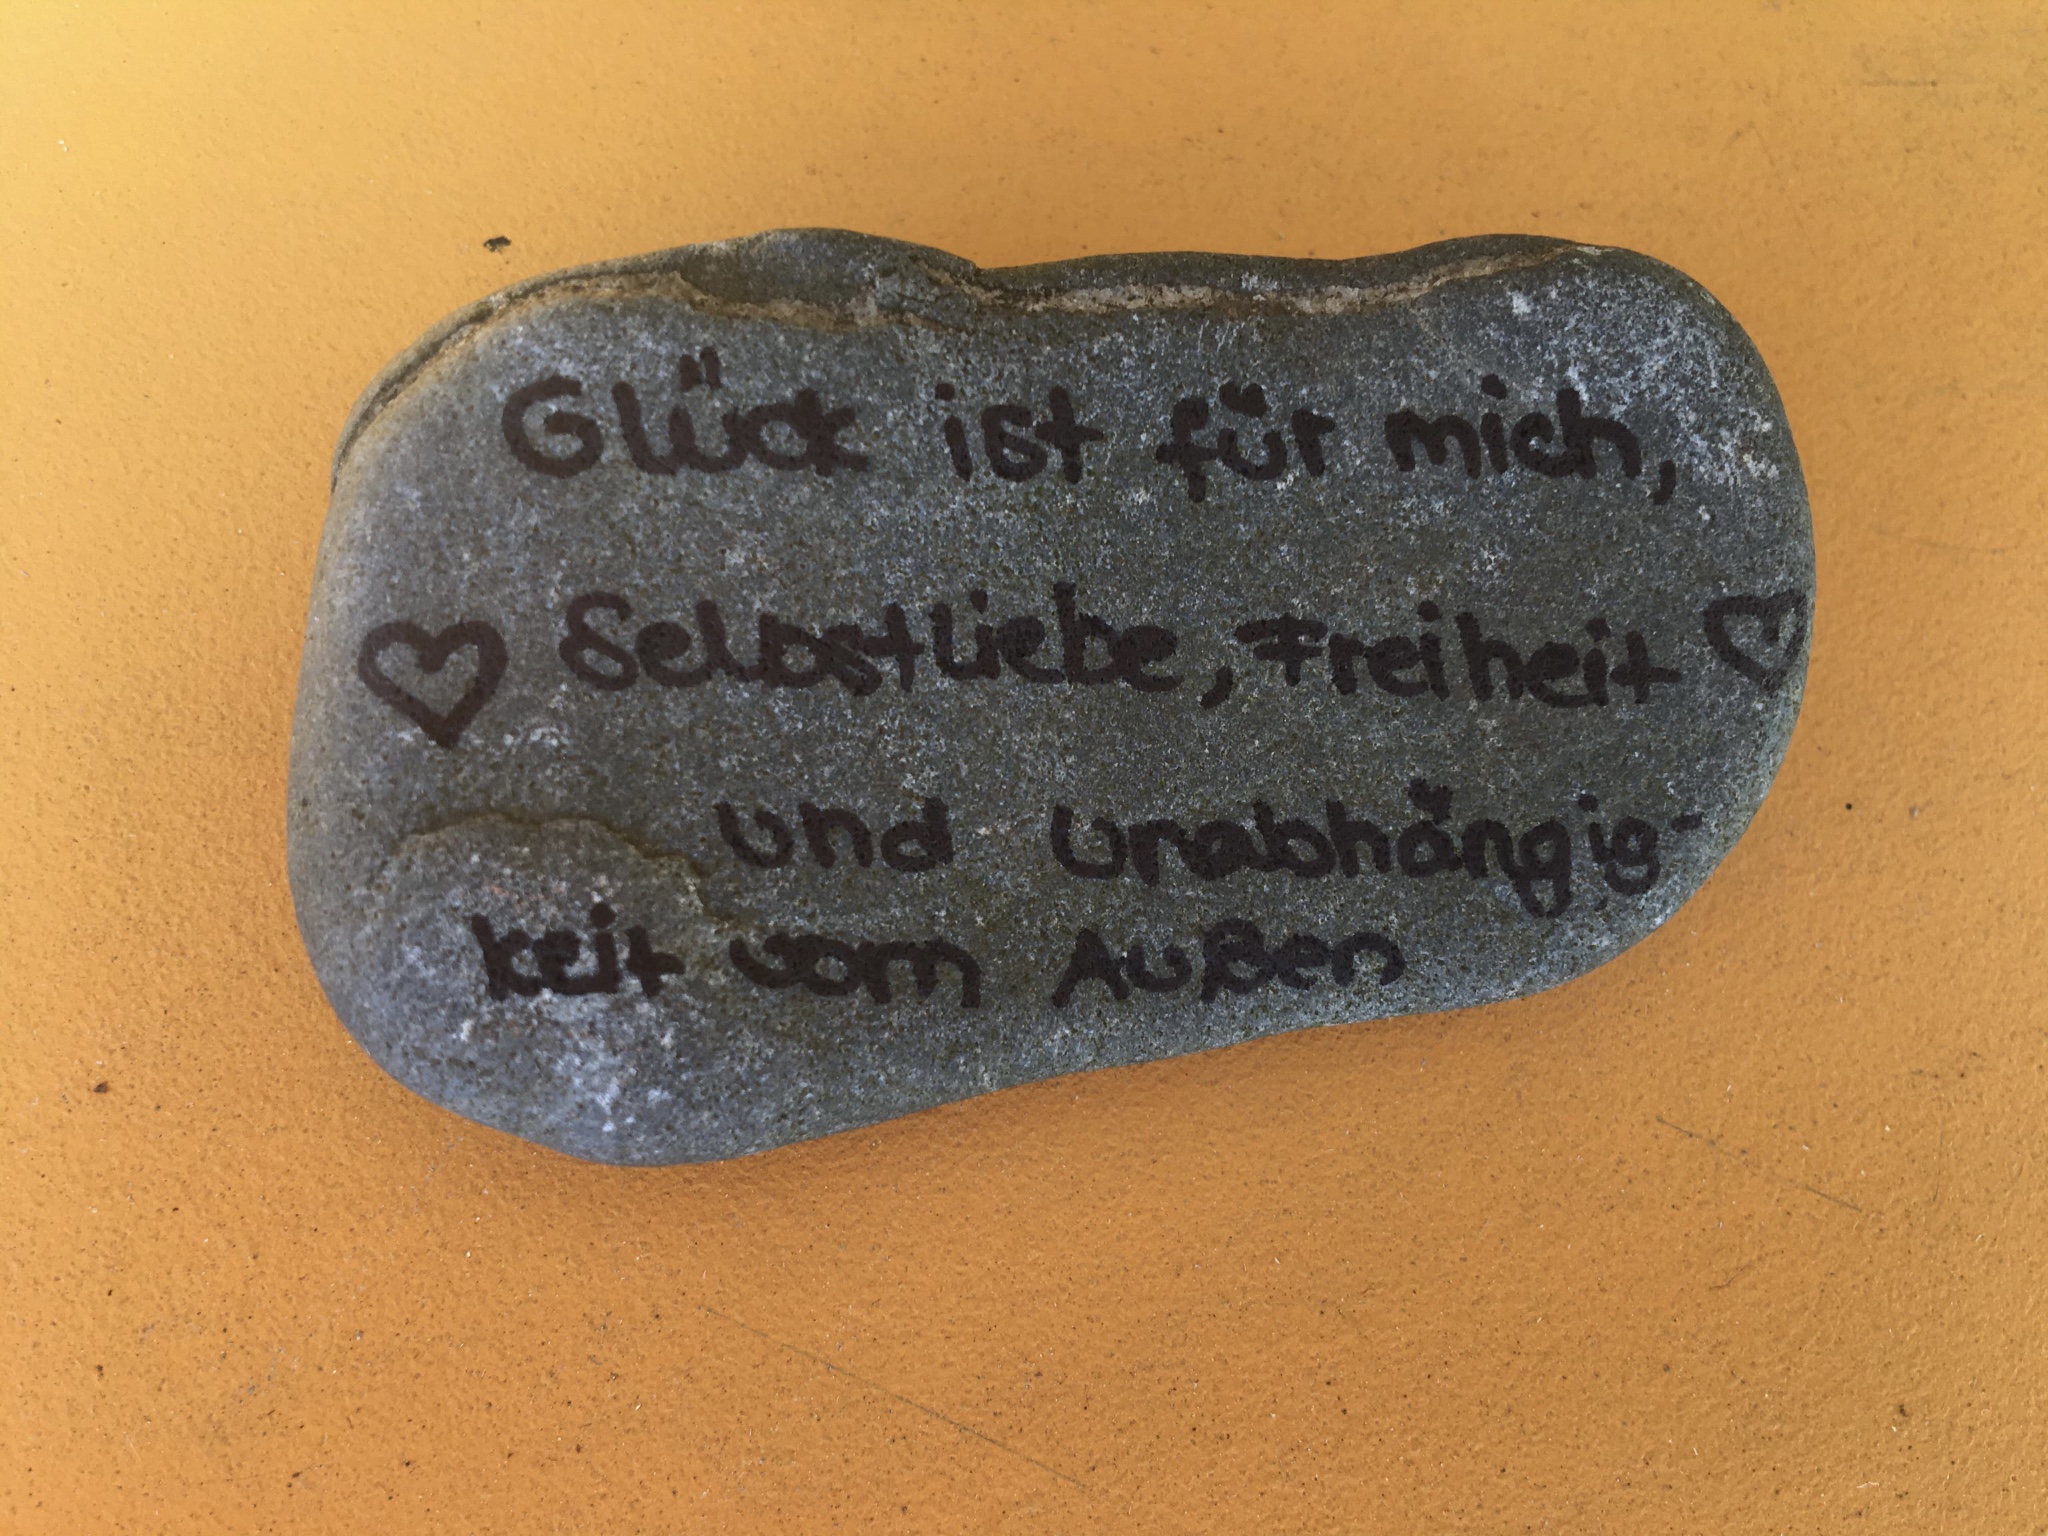 Glück ist für mich,
♡ Selbstliebe, Freiheit ♡
und unabhängig-
keit vom Außen